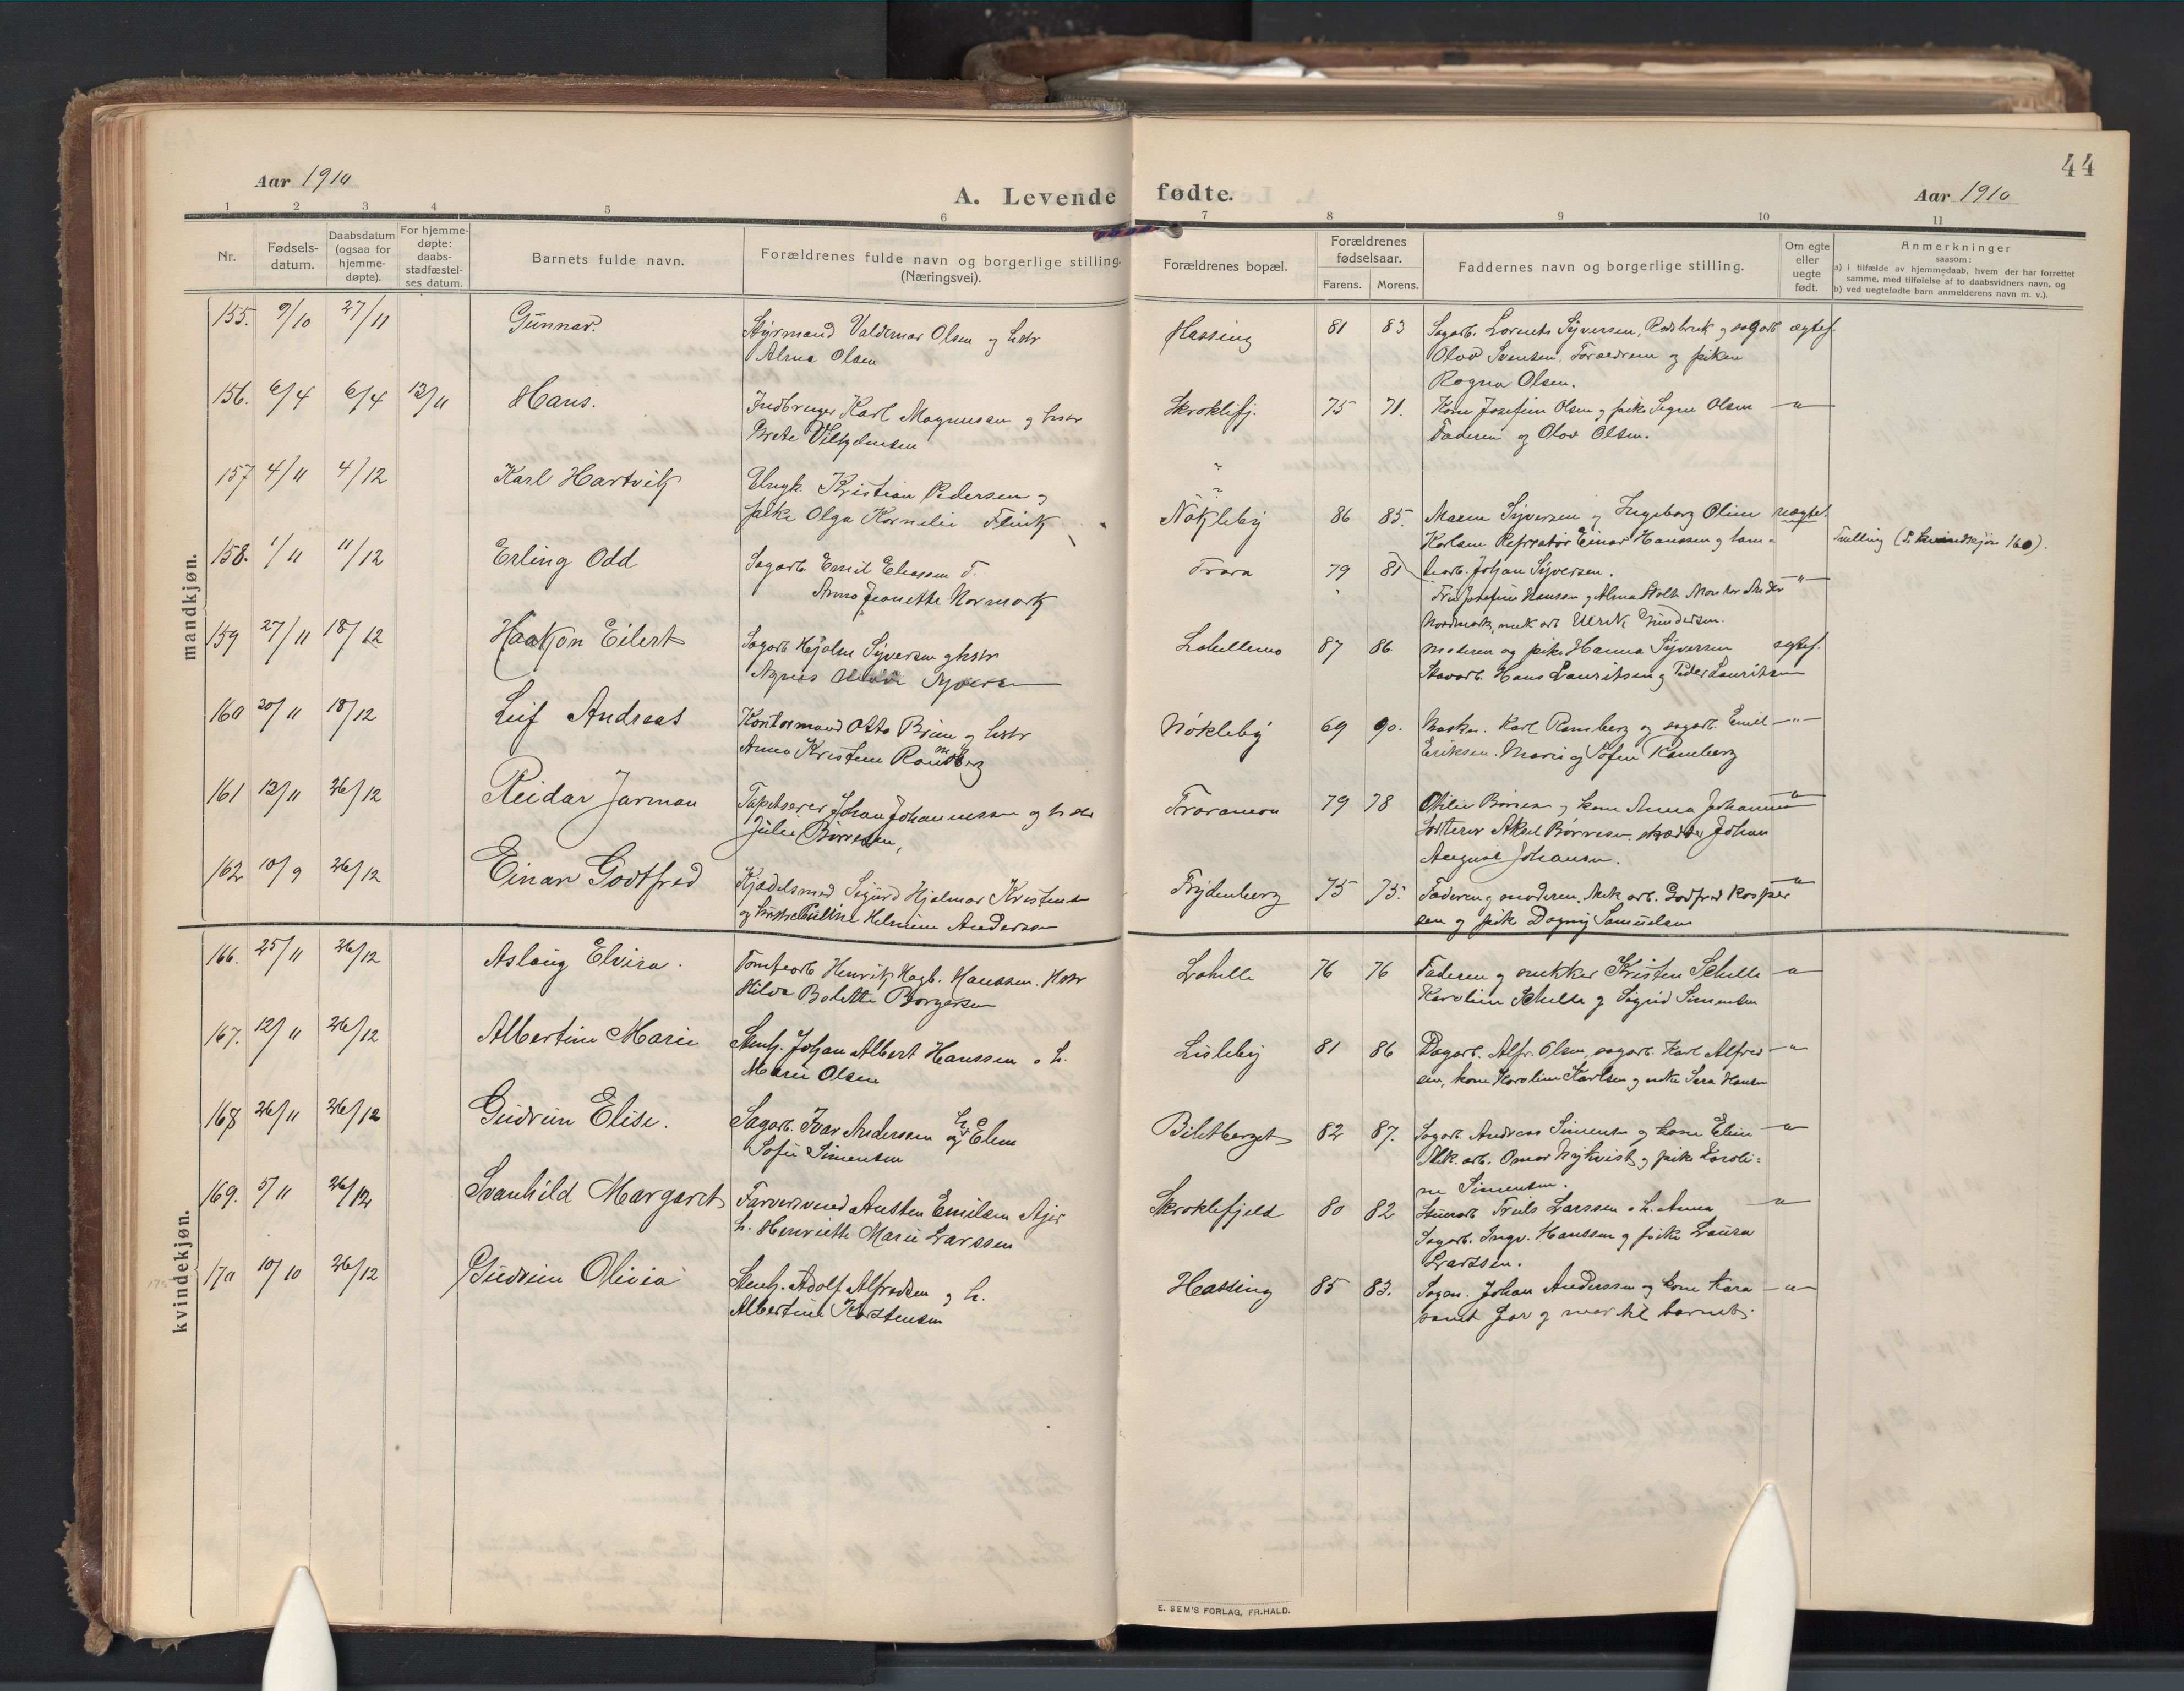 44
Aar 1910
A. Levende fødte.
Aar 1910
1 2 3 4 5 6 7 8 9 10 11
Nr.
Fødsels-
datum.
Daabsdatum
(ogsaa for
hjemme-
døpte).
For hjemme-
døpte:
daabs-
stadfæstel-
ses datum.
Barnets fulde navn.
Forældrenes fulde navn og borgerlige stilling.
(Næringsvei).
Forældrenes bopæl.
Forældrenes
fødselsaar.
Farens. Morens.
Faddernes navn og borgerlige stilling.
Om egte
eller
uegte
født.
Anmerkninger
saasom:
a) i tilfælde av hjemmedaab, hvem der har forrettet
samme, med tilføielse af to daabsvidners navn, og
b) ved uegtefødte barn anmelderens navn m. v.).
mandkjøn.
155. 9/10 27/11 Gunnar. Styrmand Valdemar Olsen og hstr Hassing 81 83 Sagarb. Lorents Syversen, Rodsbruk og sagarb ægtef.
Alma Olsen Olav Svensen. Forældrene og piken
Ragna Olsen.
156. 6/4 6/4 13/11 Hans. Indbruger Karl Magnussen og hstr Skroklifj. 75 71. Kone Josefine Olsen og pike Signe Olsen — " —
Grete Vilhelmsen Faderen og Olav Olsen.
157 4/11 4/12 Karl Hartvik Ungk. Kristian Pedersen og "
pike Olga Kornelie Flink Nökleby 86 85. Maren Syversen og Ingeborg Oline uægtef.
Karlsen Einar Hanssen og
158. 1/11 11/12 Erling Odd Sagarb. Emil Eliassen Trara 79 81 Johan Syversen. — " — Tvilling (s. kvindekjøn 160).
Anna Jeanette Normark Fru Josefine Hansen og Alma Stolt Montør
Nordmark, mek arb Ulrik Gundersen.
159 27/11 18/12 Haakon Eilert Sagarb Hjalm Syversen og hstr Lahellemo 87 86 Moderen og pike Hanna Syversen egtef.
Agnes Syversen Hans Lauritsen og Peder Lauritsen
160 20/11 18/12 Leif Andreas Kontormand Otto Brun og hstr Nökleby 69 90. Karl Ramberg og sagarb. Emil — " —
Anna Kristine Ramberg Eriksen. Marie og Sofie Ramberg
161 13/11 26/12 Reidar Jarman Tapetserer Johan Johannessen og hstr Traramoen 79 78 Børresen og kone Anna Johannsen — " —
Julie Børresen, Aksel Børresen. Johan
August Johansen.
162 10/9 26/12 Einar Godtfred Kjedelsmed Sigurd Hjalmar Kristensen Frydenberg 75 75. Faderen og moderen. Mek arb. Godfred Kasper — " —
og hustru Pauline Helmine Andersen sen og pike Dagny Samuelsen
kvindekjøn.
166. 25/11 26/12 Aslaug Elvira. Tomtearb Henrik Hagb. Hanssen. Hstr Lahelle 76 76 Faderen og snekker Kristen Schelle — " —
Hilda Bolette Borgersen Karoline Schelle og Sigrid Simensen
167. 12/11 26/12 Albertine Marie Stenh. Johan Albert Hanssen o h. Lisleby 81 86 Dagarb. Alfr. Olsen, sagarb. Karl Alfred — " —
Marie Olsen sen, kone Karoline Karlsen og enke Sara Hansen
168 26/11 26/12 Gudrun Elise. Sagarb. Ivar Andersen og h. Eline Biletberget 82 87. Sagarb Andreas Simensen og kone Eline — " —
Sofie Simensen Mek. arb. Omar Nykvist og pike Karoli=
ne Simensen.
169. 5/11 26/12 Svanhild Margaret Farversvend Austen Emilsen Skroklefjeld 80 82 Truls Larssen o h. Anna — " —
h. Henriette Marie Larssen Sagarb. Ingv. Hanssen og pike Laura
Larssen.
170 10/10 26/12 Gudrun Olivia Stenh. Adolf Alfredsen og h. Hassing 85 83. Sagm. Johan Anderssen og kone Kara — " —
Albertine Karstensen samt far og mor til barnet.
E. SEM'S FORLAG, FR.HALD.